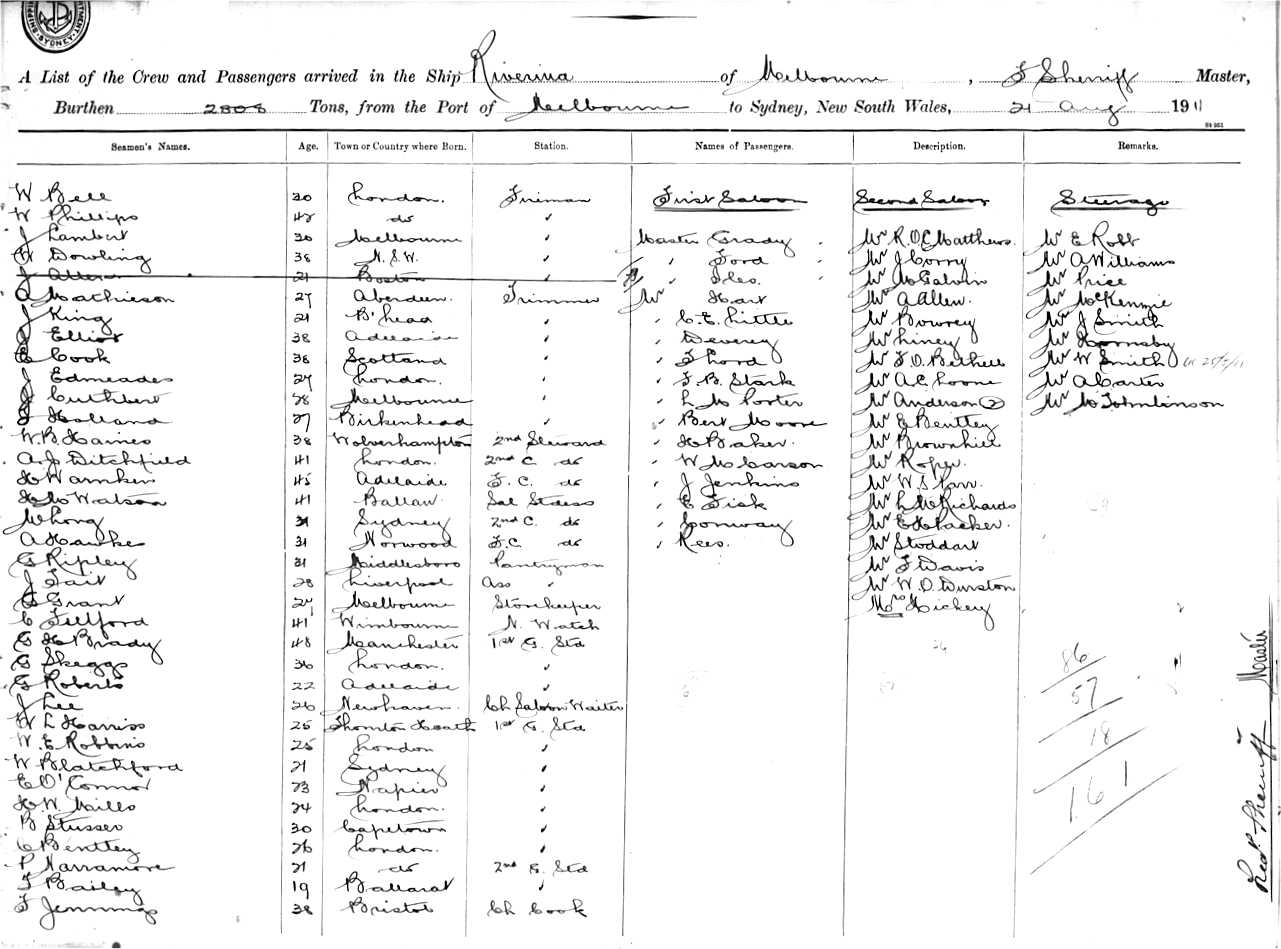 SYDNEY
A List of the Crew and Passengers arrived in the Ship Riverina of Melbourne, F Sherriff Master,
Burthen 2808 Tons, from the Port of Melbourne to Sydney, New South Wales, 21 Aug 1911
Seamen's Names. Age. Town or Country where Born. Station. Names of Passengers. Description. Remarks.
W Bell 30 London. Fireman First Saloon Second Saloon Steerage
W Phillips 42 do "
J Lambert 30 Melbourne " Master Grady Mr R.O.C. Matthews. Mr E Robb
W Dowling 38 N.S.W. " " Ford Mr J Corry Mr A Williams
J Allen 21 Boston " " Iles. Mr McGalvin Mr Price
A Mathieson 27 Aberdeen. Trimmer Mr Hart Mr A Allen. Mr McKenzie
J King 21 B'head " " C. E. Little Mr Bowrey Mr J Smith
J Elliot 38 Adelaide " " Deverey Mr Liney Mr Hornsby
C Cook 38 Scotland " " F Lord Mr F. O. Bethell Mr W Smith
J Edmeades 27 London. " " F. B. Stark Mr A. C. Loone Mr A Carter
J Cuthbert 28 Melbourne " " L M Porter Mr Anderson (2) Mr M Tomlinson
J Holland 27 Birkenhead " " Bert Moore Mr E Bentley
W. B. Haines 38 Wolverhampton 2nd Steward " H Baker. Mr Brownhill
A. J. Ditchfield 41 London. 2nd C. do " W McCarson Mr Roper.
H Warnken 45 Adelaide F. C. do " J Jenkins Mr W. S. Parr.
H Mc Watson 41 Ballan. Sal Stdess " E Fisk Mr L McRichards
M Long 31 Sydney 2nd C. do " Conway Mr E H Packer.
A Hawkes 31 Norwood F.C. do " Rees. Mr Stoddart
G Ripley 31 Middlesboro Pantryman Mr F Davis
J Tait 28 Liverpool Ass " Mr W. D. Durston
G Grant Melbourne Storekeeper Mrs Hickey
C Fulford 41 Wimbourne N. Watch
G H Brady 48 Manchester 1st G. Std
G Skeggs 36 London. " 86
G Roberts 22 Adelaide " 57
J Lee 26 Newhaven. Ch Saloon Waiter
W L Harriss 25 Thornton Heath 1st G. Std 18
W. E. Robbins 25 London "
W Blatchford 21 Sydney " 161
E O'Connor 23 Napier "
H. W. Mills 24 London. "
B Stusser 30 Capetown "
C Bentley 26 London. "
P Narramore 21 do 2nd G. Std
F Bailey 19 Ballarat "
F Jennings 38 Bristol Ch Cook
Fredk Sherriff Master